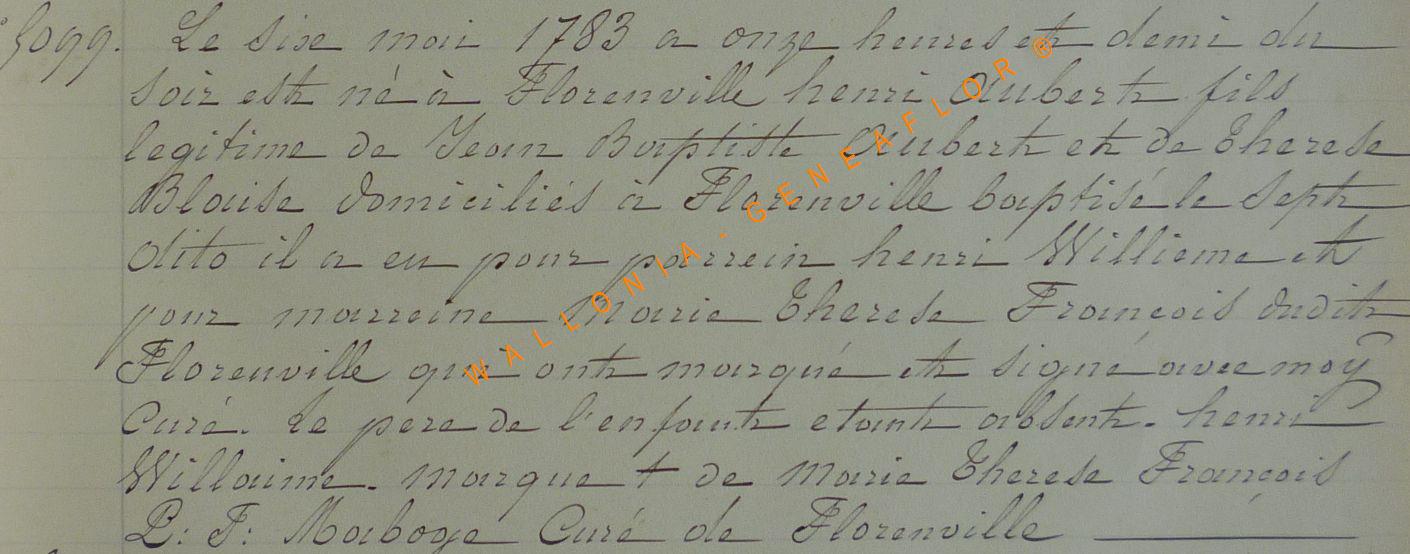 5099. Le six mai 1783 a onze heures et demi du
soir est né à Florenville henri Aubert fils
legitime de Jean Baptiste Aubert et de Therese
Blaise domiciliés à Florenville baptisé le sept
dito il a eu pour parrein henri Willieme et
pour marreine Marie Therese François dudit
Florenville qui ont marqué et signé avec moÿ
Curé. Le pere de l'enfant etant absent. henri
Willaime. marque + de Marie Therese François
P: F: Maboge Curé de Florenville
WALLONIA - GENEAFLOR ®